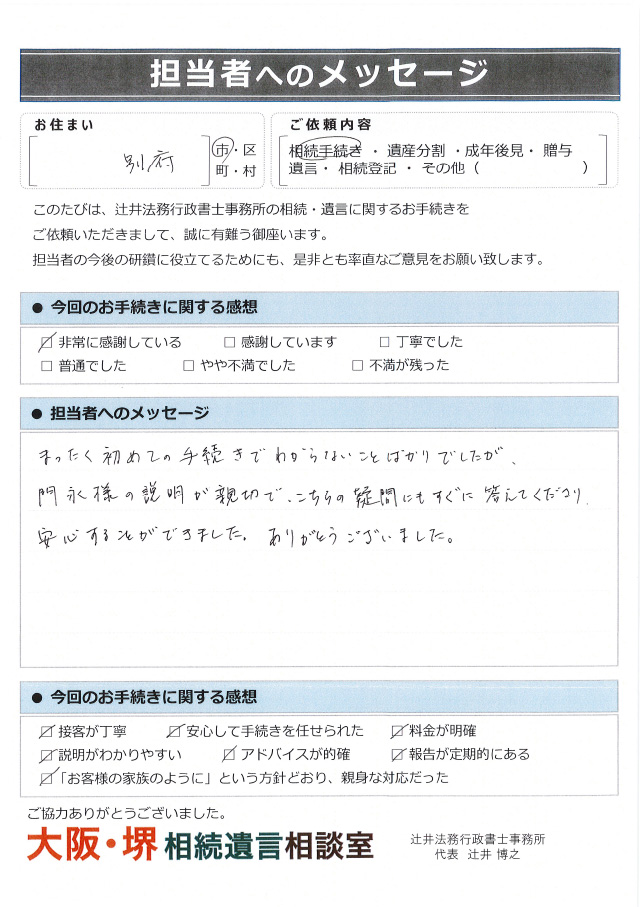 担当者へのメッセージ
お住まい
別府 市・区
町・村
ご依頼内容
相続手続き ・ 遺産分割 ・成年後見・ 贈与
遺言・ 相続登記 ・ その他（　　　　　　）
このたびは、辻井法務行政書士事務所の相続・遺言に関するお手続きを
ご依頼いただきまして、誠に有難う御座います。
担当者の今後の研鑽に役立てるためにも、是非とも率直なご意見をお願い致します。
● 今回のお手続きに関する感想
☑ 非常に感謝している　□ 感謝しています　□ 丁寧でした
□ 普通でした　□ やや不満でした　□ 不満が残った
● 担当者へのメッセージ
まったく初めての手続きでわからないことばかりでしたが、
門永様の説明が親切で、こちらの疑問にもすぐに答えてくださり、
安心することができました。ありがとうございました。
● 今回のお手続きに関する感想
☑接客が丁寧　☑安心して手続きを任せられた　☑料金が明確
☑説明がわかりやすい　☑アドバイスが的確　☑報告が定期的にある
☑「お客様の家族のように」という方針どおり、親身な対応だった
ご協力ありがとうございました。
大阪・堺 相続遺言相談室
辻井法務行政書士事務所
代表　辻井 博之